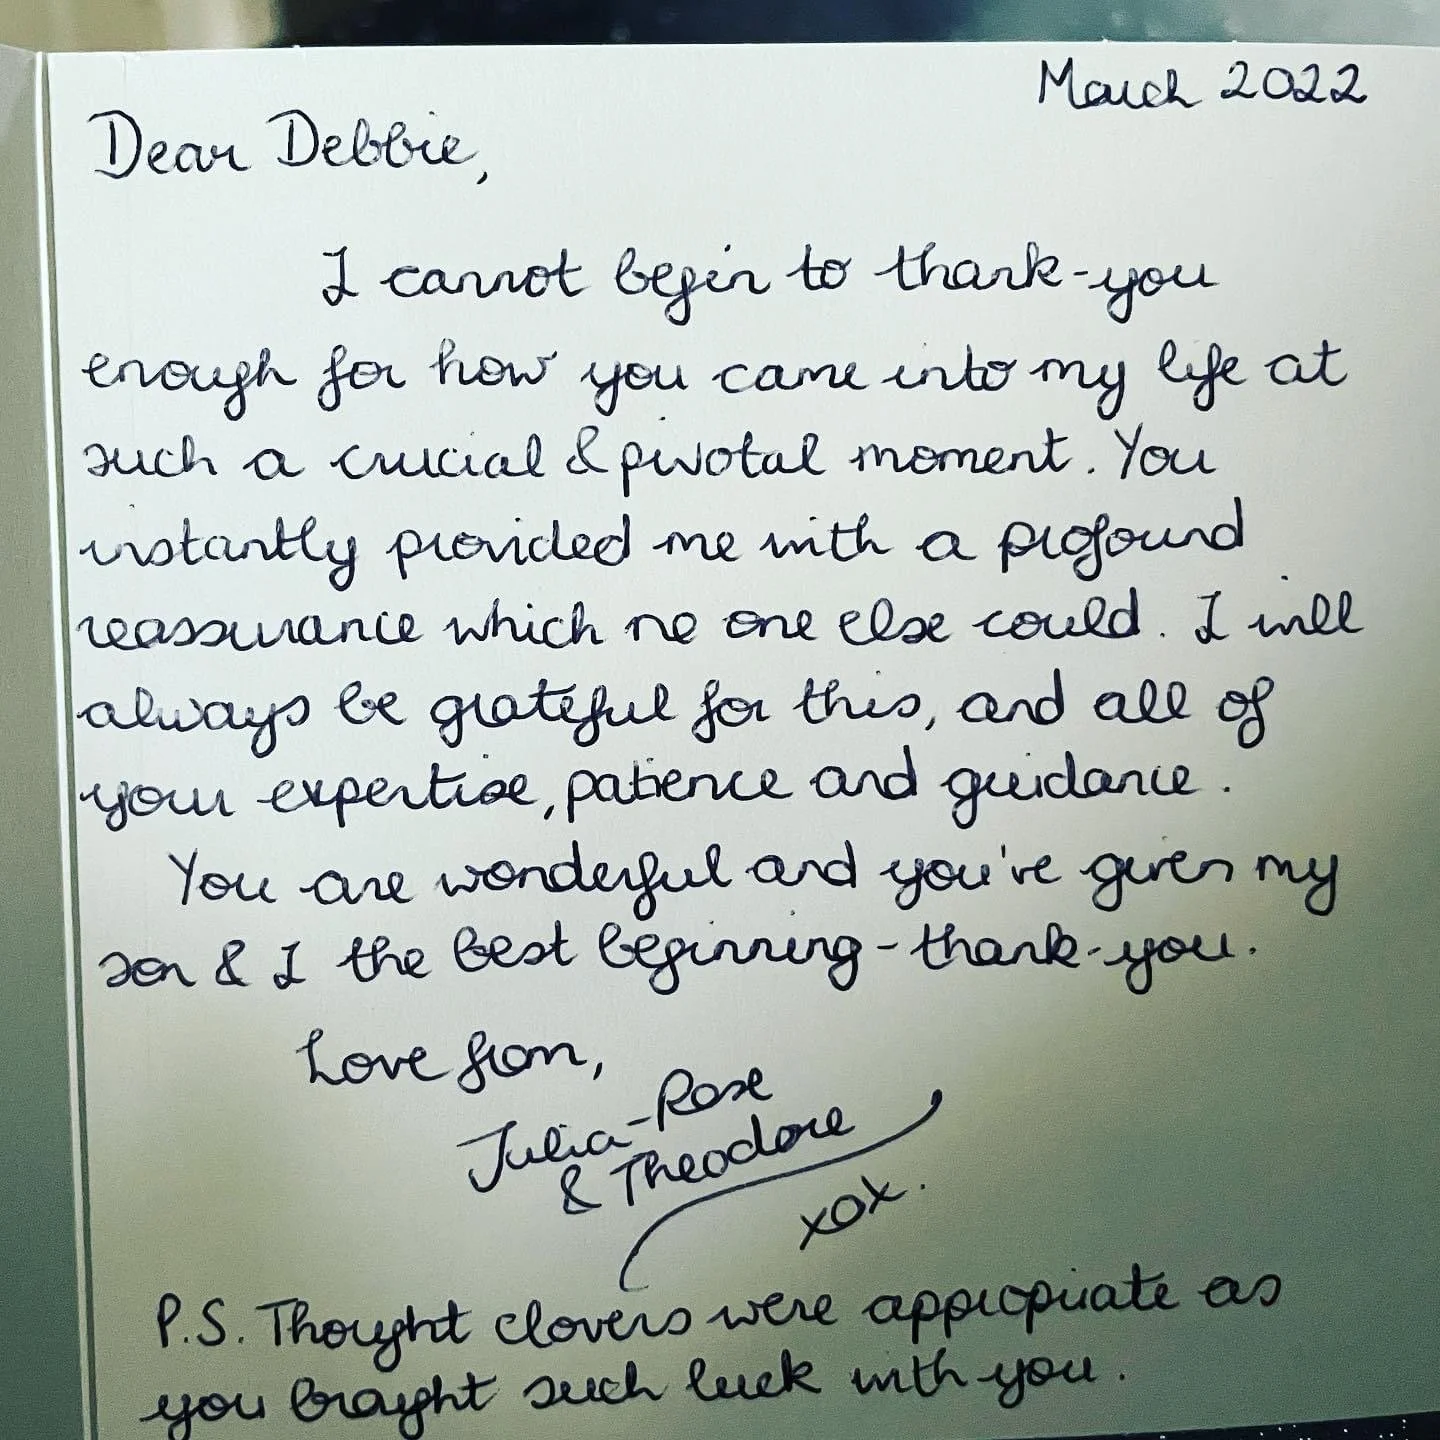 March 2022
Dear Debbie,
I cannot begin to thank-you
enough for how you came into my life at
such a crucial & pivotal moment. You
instantly provided me with a profound
reassurance which no one else could. I will
always be grateful for this, and all of
your expertise, patience and guidance.
You are wonderful and you've given my
son & I the best beginning - thank-you.
Love from,
Julia-Rose
& Theodore
xox.
P.S. Thought clovers were appropriate as
you brought such luck with you.